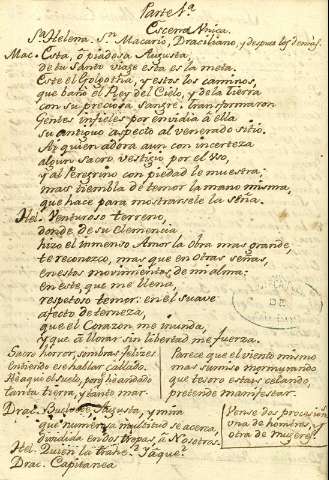 Parte 1ª
Escena Unica.
Sta Helena. Sn Macario, Draciliano, y despues los demàs.
Mac. Esta, ô piadosa Augusta,
de tu Santo viage esta es la meta.
Este el Golgotha, y estos los caminos,
que bañò el Rey del Cielo, y de la tierra
con su preciosa sangre: transformaron
Gentes infieles por envidia à ella
su antiguo aspecto al venerado sitio,
Ay quien adora aun con incerteza
algun sacro vestigio por el uso,
y al Peregrino con piedad le muestra;
mas tiembla de temor la mano misma,
que hace para mostrarsele la seña.
Hel. Venturoso terreno,
donde de su Clemencia
hizo el inmenso Amor la obra mas grande,
te reconozco, mas que en otras señas,
en estos movimientos, de mi alma:
en este, que me llena,
respetoso temor: en el suave
afecto de terneza,
que el Corazon me inunda,
y que à llorar sin libertad me fuerza.
Sacro horror, sombras felizes
Entiendo ese hablar callado.
He aqui el suelo, por q he andado
tanta tierra, y tanto mar.
Parece que el viento mismo
mas sumiso mormurando
que tesoro estays celando
pretende manifestar.
Drac. Buelbete, Augusta, y mira
que numerosa multitud se acerca,
dividida en dos tropas, à Nosotros.
Vense dos procesiones
una de hombres, y
otra de mugeres.
Hel. Quien la trahe?
Drac. Capitanea